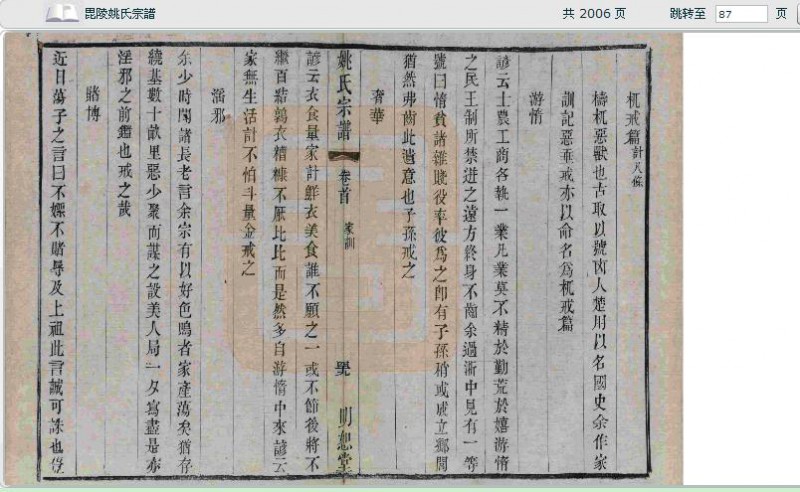 毘陵姚氏宗譜
共 2006 页
跳转至 87 页
杌戒篇 計六條
檮杌惡獸也古取以號凶人楚用以名國史余作家
訓記惡垂戒亦以命名爲杌戒篇
游惰
諺云士農工商各執一業凡業莫不精於勤荒於嬉游惰
之民王制所禁逬之遠方終身不齒余過浙中見有一等
號曰惰貧諸雜賤役率彼爲之卽有子孫稍或成立鄉閭
猶然弗齒此遺意也子孫戒之
奢華
姚氏宗譜 卷首 家訓 明恕堂
諺云衣食量家計鮮衣美食誰不願之一或不節後將不
繼百結鶉衣糟糠不厭比比而是然多自游惰中來諺云
家無生活計不怕斗量金戒之
淫邪
余少時聞諸長老言余宗有以好色鳴者家產蕩矣猶存
繞基數十畝里惡少聚而謀之設美人局一夕寫盡是亦
淫邪之前鑑也戒之哉
賭博
近日蕩子之言曰不嫖不賭辱及上祖此言誠可誅也